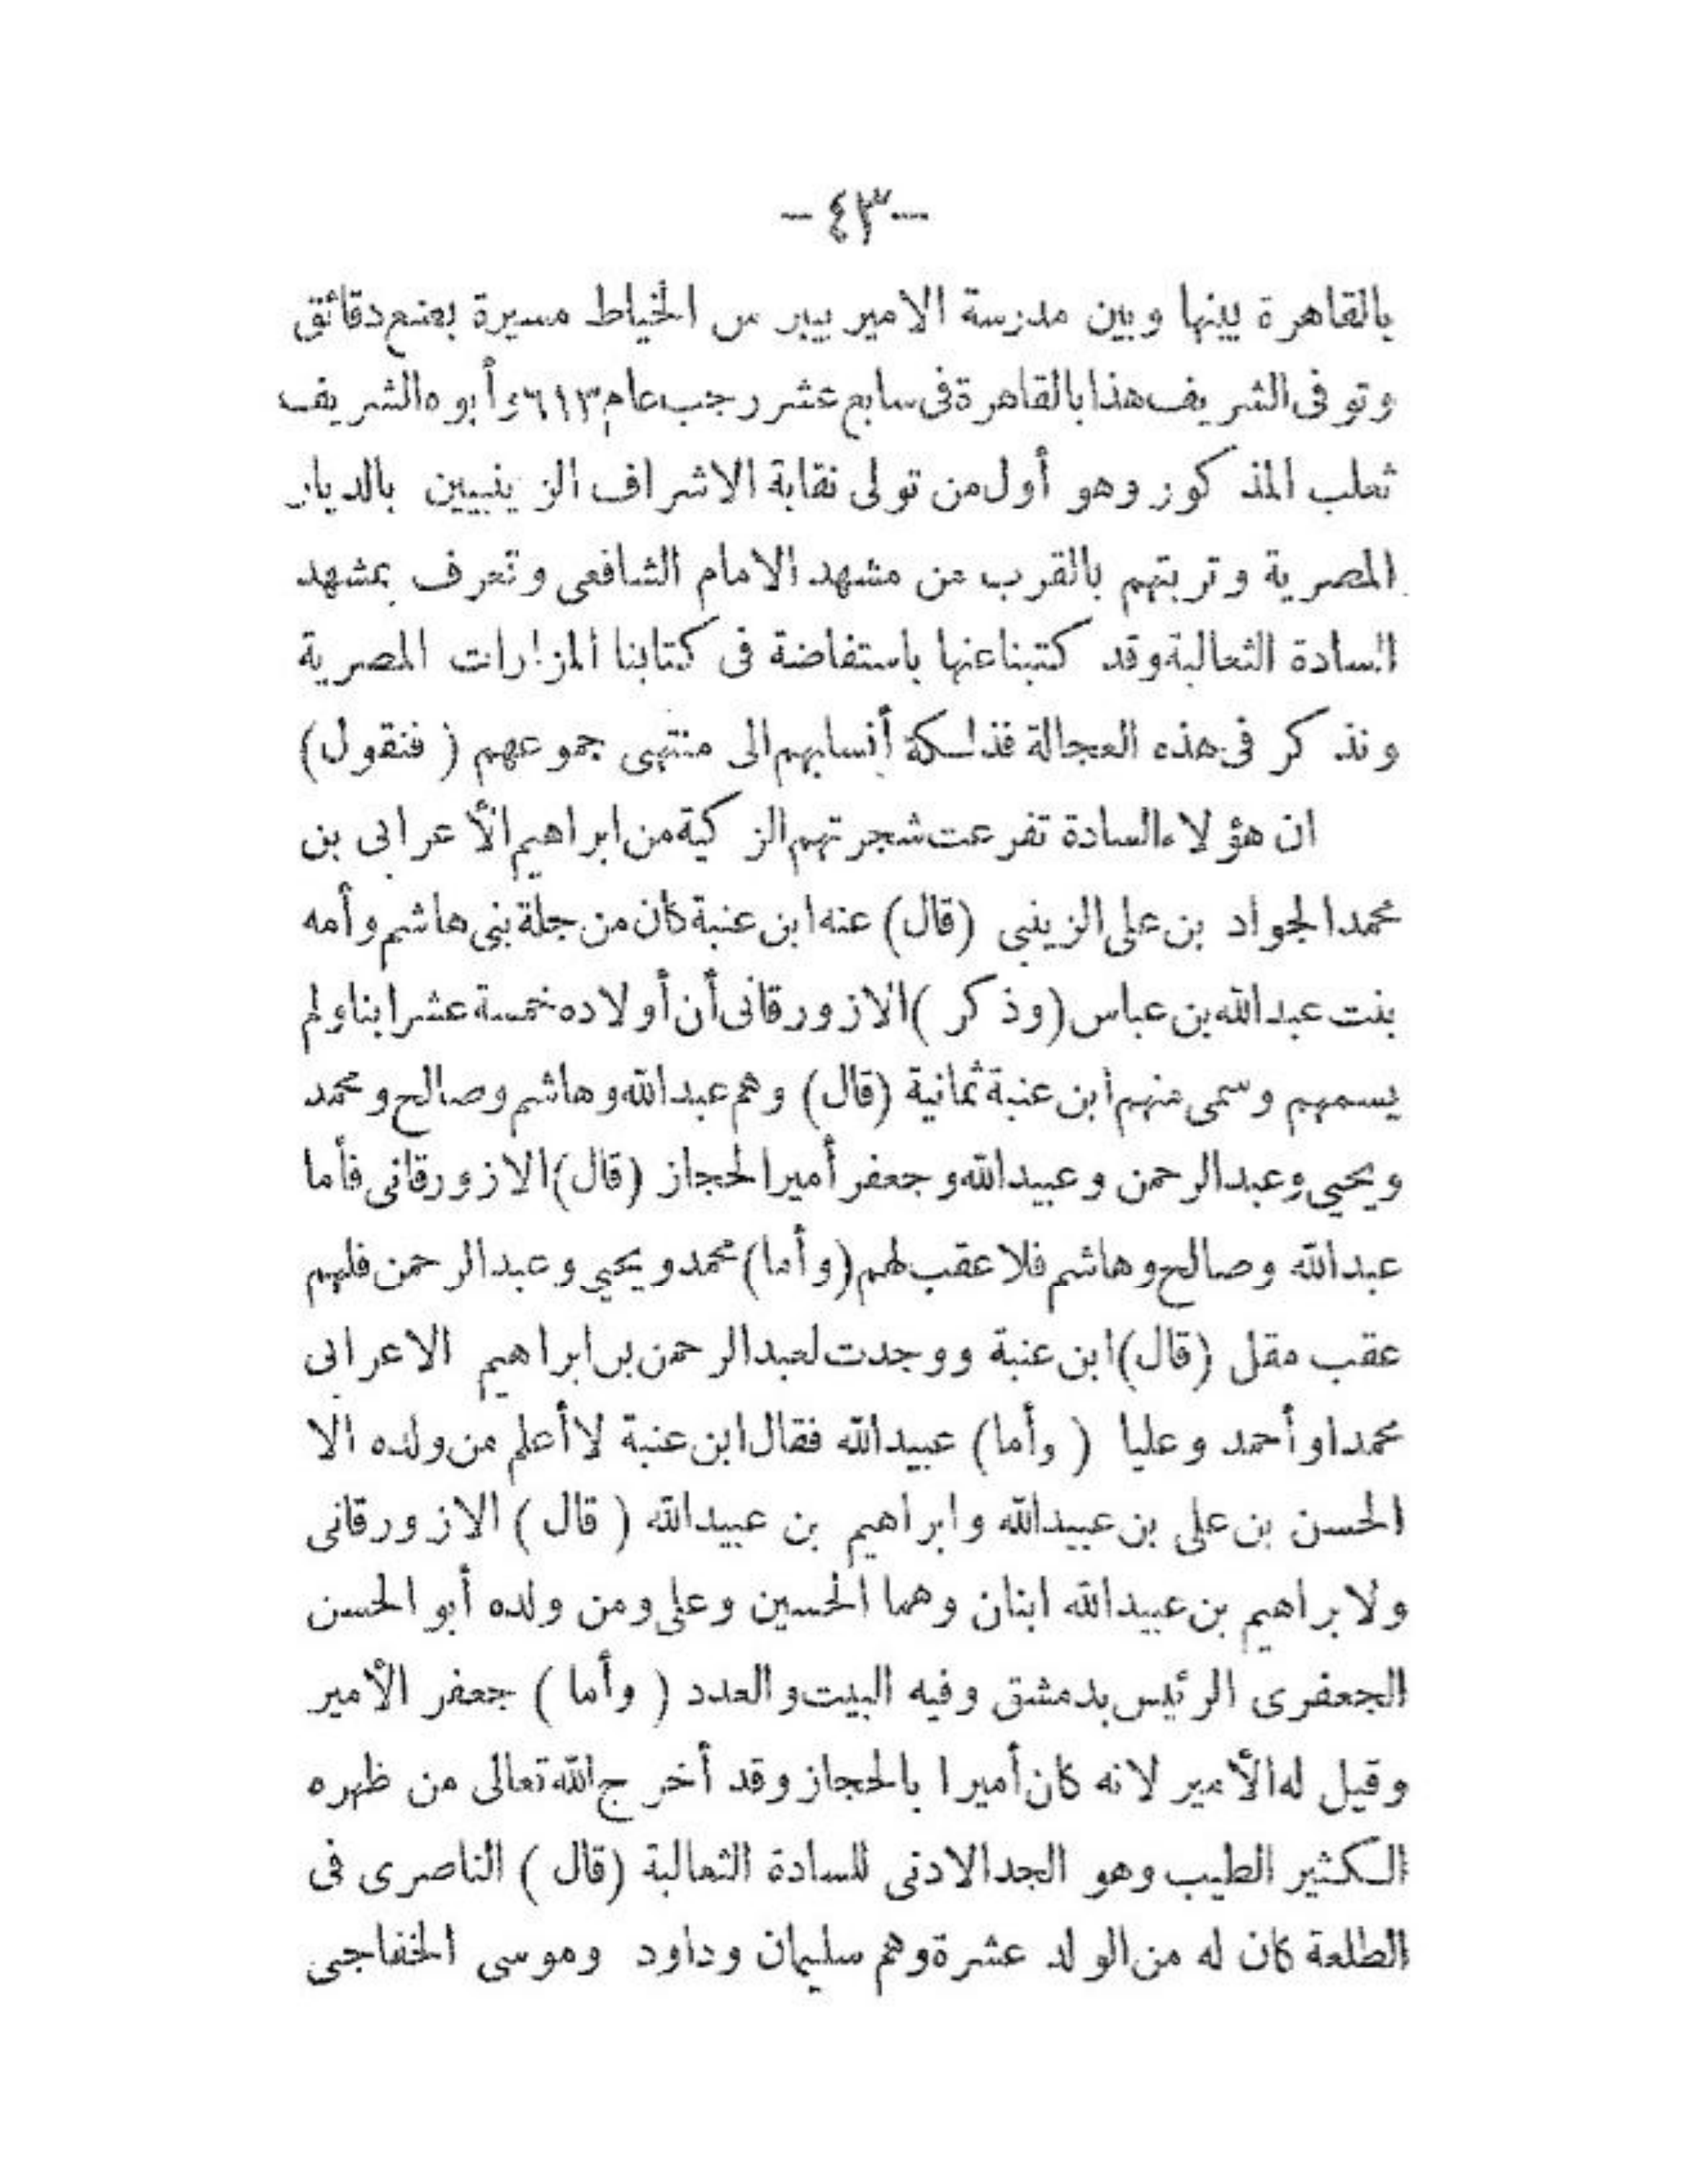 -٤٣-
بالقاهرة بينها وبين مدرسة الامير بيبرس الخياط مسيرة بضع دقائق
وتوفى الشريف هذا بالقاهرة فى سابع عشر رجب عام ٦١٣ وأبوه الشريف
ثعلب المذكور وهو أول من تولى نقابة الاشراف الزينبيين بالديار
المصرية وتربتهم بالقرب من مشهد الامام الشافعى وتعرف بمشهد
السادة الثعالبة وقد كتبنا عنها باستفاضة فى كتابنا المزارات المصرية
ونذكر فى هذه العجالة فذلكة أنسابهم الى منتهى جموعهم ( فنقول )
ان هؤلاء السادة تفرعت شجرتهم الزكية من ابراهيم الأعرابى بن
محمد الجواد بن على الزينبى (قال) عنه ابن عنبة كان من جلة بنى هاشم وأمه
بنت عبد الله بن عباس (وذكر) الازورقانى أن أولاده خمسة عشر ابنا ولم
يسمهم وسمى منهم ابن عنبة ثمانية (قال) وهم عبد الله وهاشم وصالح ومحمد
ويحيى وعبد الرحمن وعبيد الله وجعفر أمير الحجاز (قال) الازورقانى فأما
عبد الله وصالح وهاشم فلا عقب لهم (وأما) محمد ويحيى وعبد الرحمن فلهم
عقب مقل (قال) ابن عنبة ووجدت لعبد الرحمن بن ابراهيم الاعرابى
محمدا وأحمد وعليا ( وأما ) عبيد الله فقال ابن عنبة لا أعلم من ولده الا
الحسن بن على بن عبيد الله وابراهيم بن عبيد الله ( قال ) الازورقانى
ولابراهيم بن عبيد الله ابنان وهما الحسين وعلى ومن ولده أبو الحسن
الجعفرى الرئيس بدمشق وفيه البيت والعدد ( وأما ) جعفر الأمير
وقيل له الأمير لانه كان أميرا بالحجاز وقد أخرج الله تعالى من ظهره
الكثير الطيب وهو الجد الادنى للسادة الثعالبة (قال ) الناصرى فى
الطلعة كان له من الولد عشرة وهم سليمان وداود وموسى الخفاجى